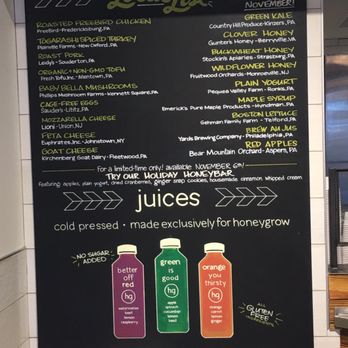 Local List
NOVEMBER!
ROASTED FREEBIRD CHICKEN
FreeBird-Fredericksburg, PA
TOGARASHI SPICED TURKEY
Plainville Farms-New Oxford, PA
ROAST PORK
Leidy's-Souderton, PA
ORGANIC NON-GMO TOFU
Fresh Tofu Inc.-Allentown, PA
BABY BELLA MUSHROOMS
Phillips Mushroom Farms-Kennett Square, PA
CAGE-FREE EGGS
Sauders-Lititz, PA
MOZZARELLA CHEESE
Lioni-Union, NJ
FETA CHEESE
Euphrates Inc.-Johnstown, NY
GOAT CHEESE
Kirchenberg Goat Dairy-Fleetwood, PA
GREEN KALE
Country Hill Produce-Kinzers, PA
CLOVER HONEY
Gunter's Honey-Berryville, VA
BUCKWHEAT HONEY
Stockin's Apiaries-Strasburg, PA
WILDFLOWER HONEY
Fruitwood Orchards-Monroeville, NJ
PLAIN YOGURT
Pequea Valley Farm-Ronks, PA
MAPLE SYRUP
Emerick's Pure Maple Products-Hyndman, PA
BOSTON LETTUCE
Gehman Family Farm-Telford, PA
BREW AU JUS
Yards Brewing Company-Philadelphia, PA
RED APPLES
Bear Mountain Orchard-Aspers, PA
for a limited-time only! available NOVEMBER 6th!
TRY OUR HOLIDAY HONEYBAR
Featuring: apples, plain yogurt, dried cranberries, ginger snap cookies, housemade cinnamon whipped cream
juices
cold pressed • made exclusively for honeygrow
NO SUGAR
ADDED
better
off
red
hg
watermelon
beet
lemon
raspberry
green
is
good
hg
apple
spinach
cucumber
lemon
basil
orange
you
thirsty
hg
orange
carrot
lemon
ginger
ALL
GLUTEN
FREE